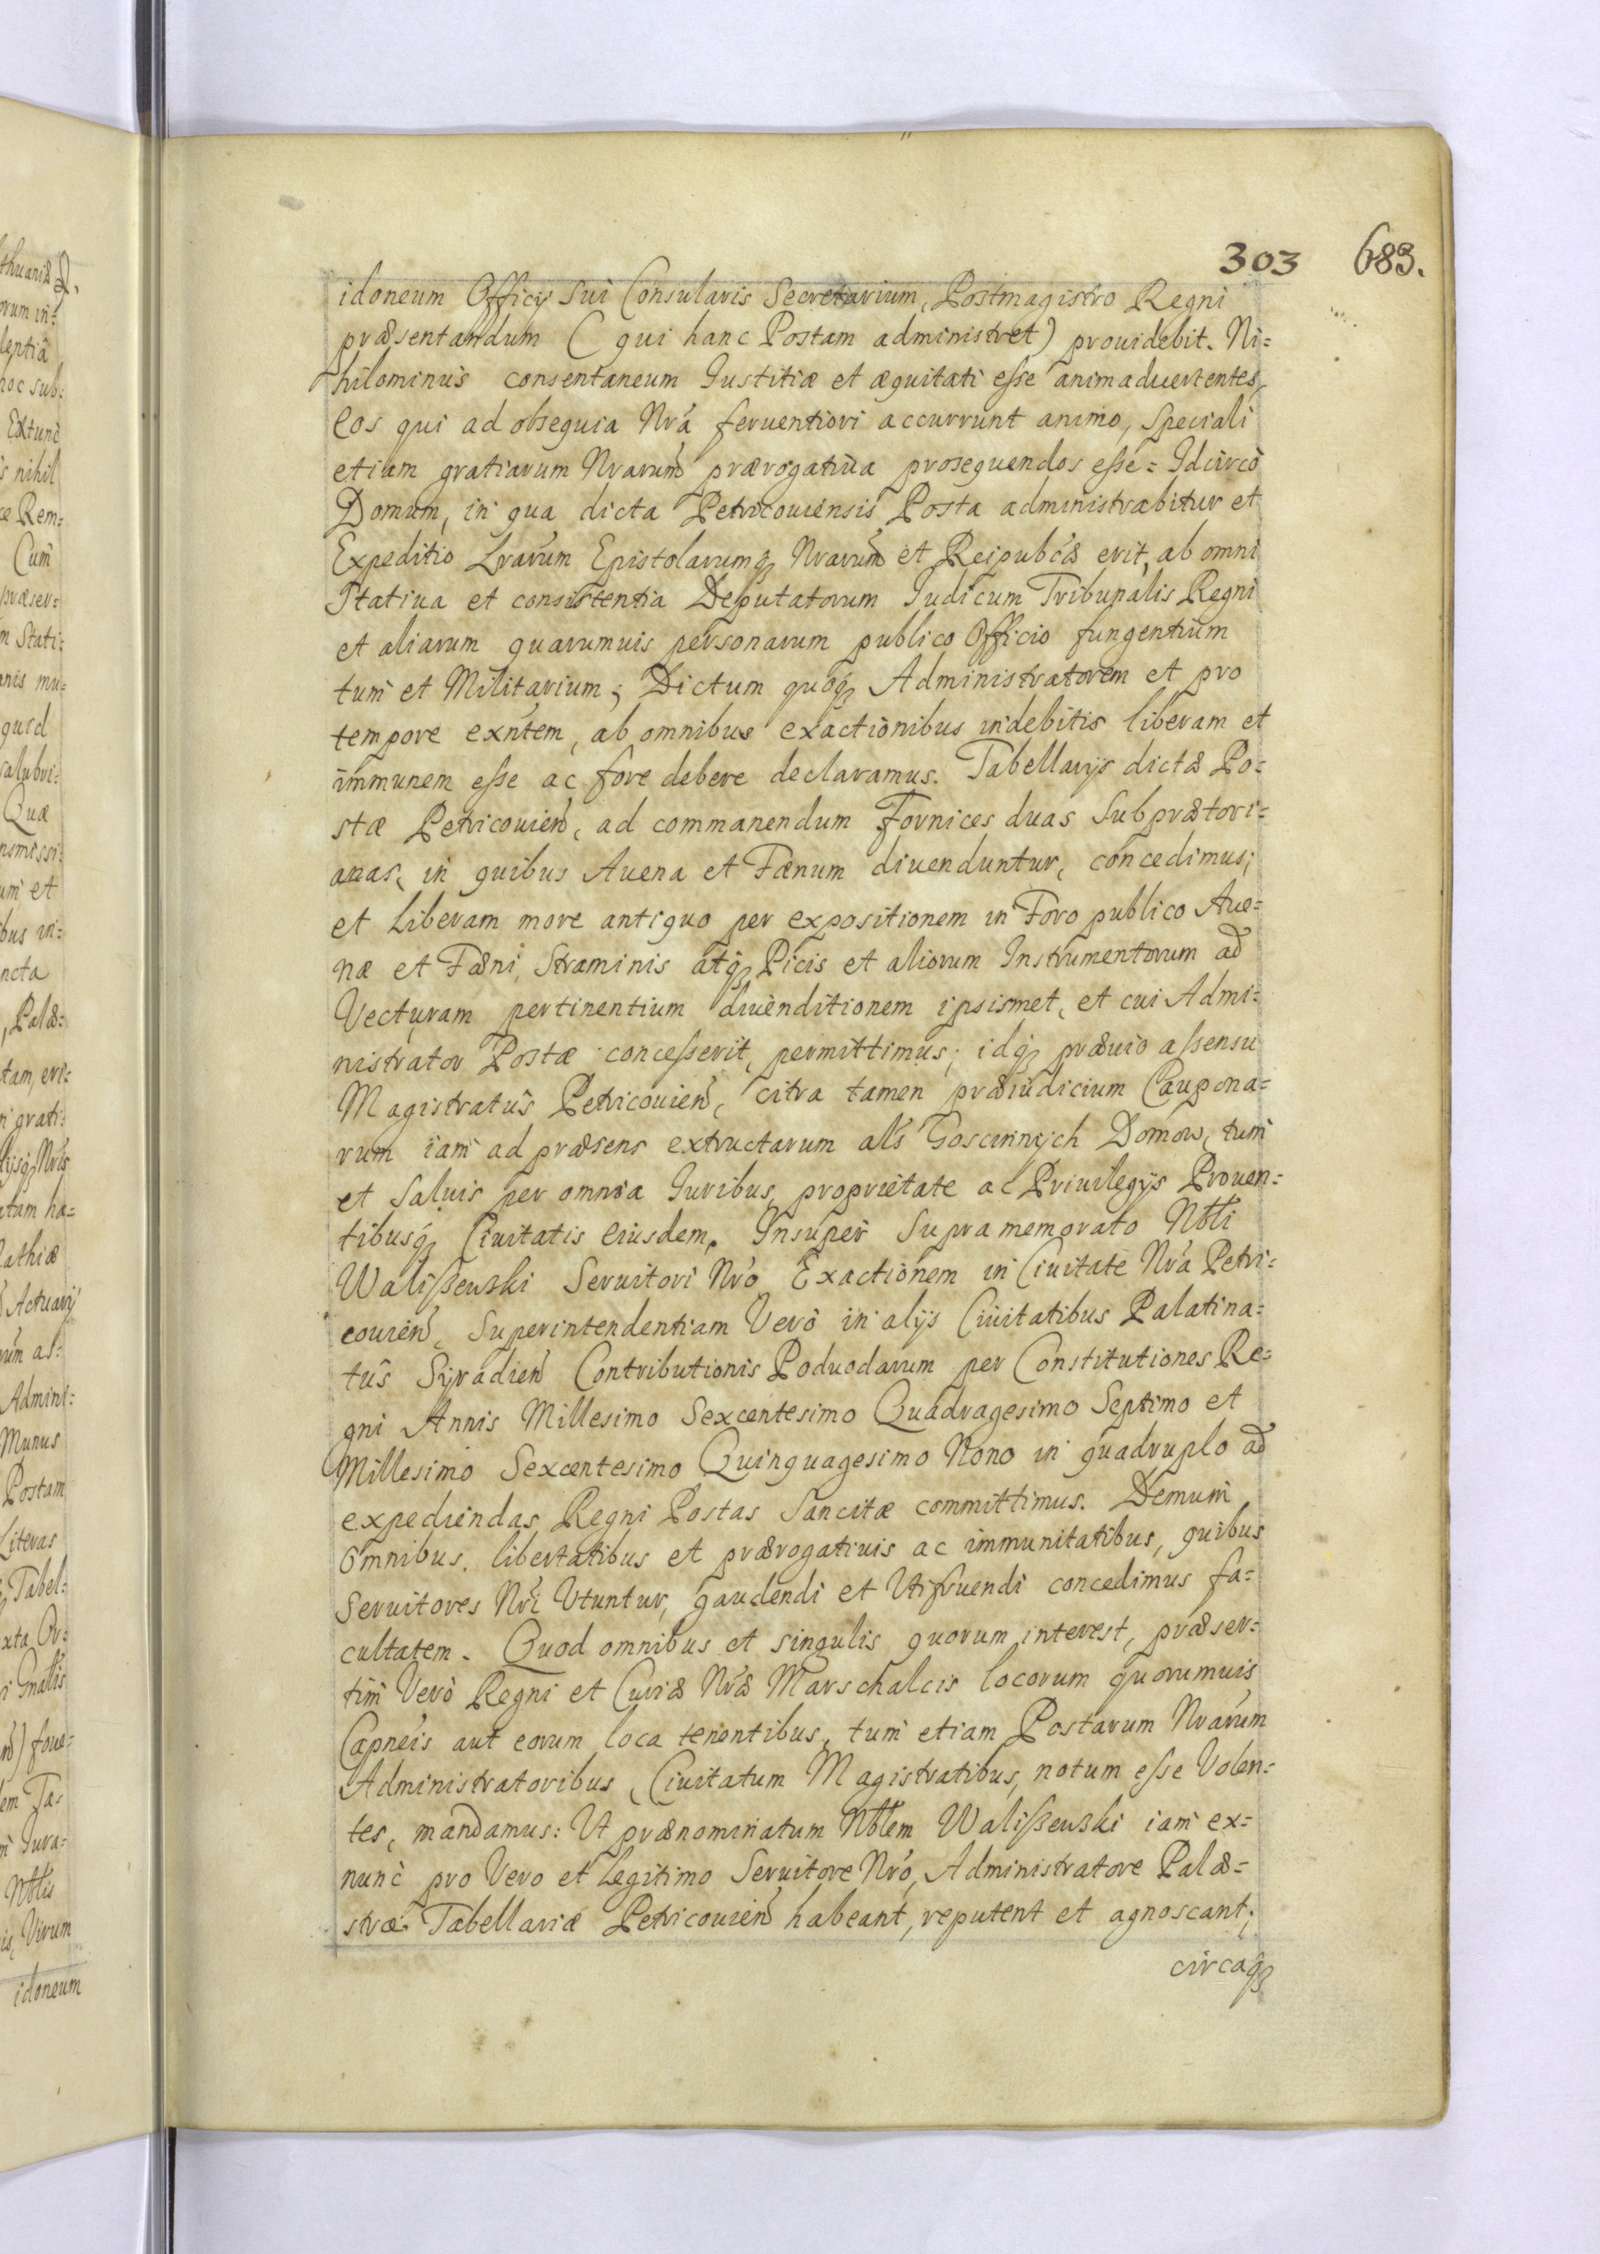 303 683.
idoneum Officij sui Consularis Secretarium, Postmagistro Regni
præsentandum (qui hanc Postam administret) prouidebit. Ni=
hilominus consentaneum Iustitiæ et æquitati esse animaduertentes,
eos qui ad obsequia Nrá feruentiori accurrunt animo, speciali
etiam gratiarum Nrarum̃ prærogatiua prosequendos esse. Idcircò
Domum, in qua dicta Petricouiensis Posta administrabitur et
Expeditio Lrarum Epistolarumq Nrarum̃ et Reipubcæ erit, ab omni
Statiua et consistentia Deputatorum Iudicum Tribunalis Regni
et aliarum quarumuis personarum publico Officio fungentium
tum et Militarium; Dictum quoq Administratorem et pro
tempore exntem, ab omnibus exactionibus indebitis liberam et
immunem esse ac fore debere declaramus. Tabellarijs dictæ Po=
stæ Petricouien̄, ad commanendum Fornices duas Subprætori=
anas, in quibus Auena et Fænum diuenduntur, concedimus;
et Liberam more antiquo per expositionem in Foro publico Aue=
næ et Fæni, Straminis atq Picis et aliorum Instrumentorum ad
Vecturam pertinentium diuenditionem ipsismet, et cui Admi=
nistrator Postæ concesserit, permittimus; idq præuio assensu
Magistratûs Petricouien̄, citra tamen præiudicium Caupona=
rum iam ad præsens extructarum als Goscinnych Domow, tum
et Saluis per omnia Iuribus, proprietate ac Priuilegijs Prouen=
tibusq Ciuitatis eiusdem. Insuper Supramemorato Nbli
Waliszewski Seruitori Nrõ Exactionem in Ciuitate Nrá Petri=
couien̄, Superintendentiam Verò in alijs Ciuitatibus Palatina=
tûs Syradien̄ Contributionis Poduodarum per Constitutiones Re=
gni Annis Millesimo Sexcentesimo Quadragesimo Septimo et
Millesimo Sexcentesimo Quinquagesimo Nono in quadruplo ad
expediendas Regni Postas Sancitæ committimus. Demum
Omnibus, libertatibus et prærogatiuis ac immunitatibus, quibus
Seruitores Nri Vtuntur, gaudendi et Vtifruendi concedimus fa=
cultatem. Quod omnibus et singulis quorum interest, præser=
tim Verò Regni et Curiæ Nræ Marschalcis locorum quorumuis
Capneis aut eorum loca tenentibus, tum etiam Postarum Nrarum
Administratoribus, Ciuitatum Magistratibus, notum esse Volen=
tes, mandamus: Vt prænominatum Nblem Waliszewski iam ex=
nunc pro Vero et Legitimo Seruitore Nrõ, Administratore Palæ=
stræ Tabellariæ Petricouien̄ habeant, reputent et agnoscant;
circaq